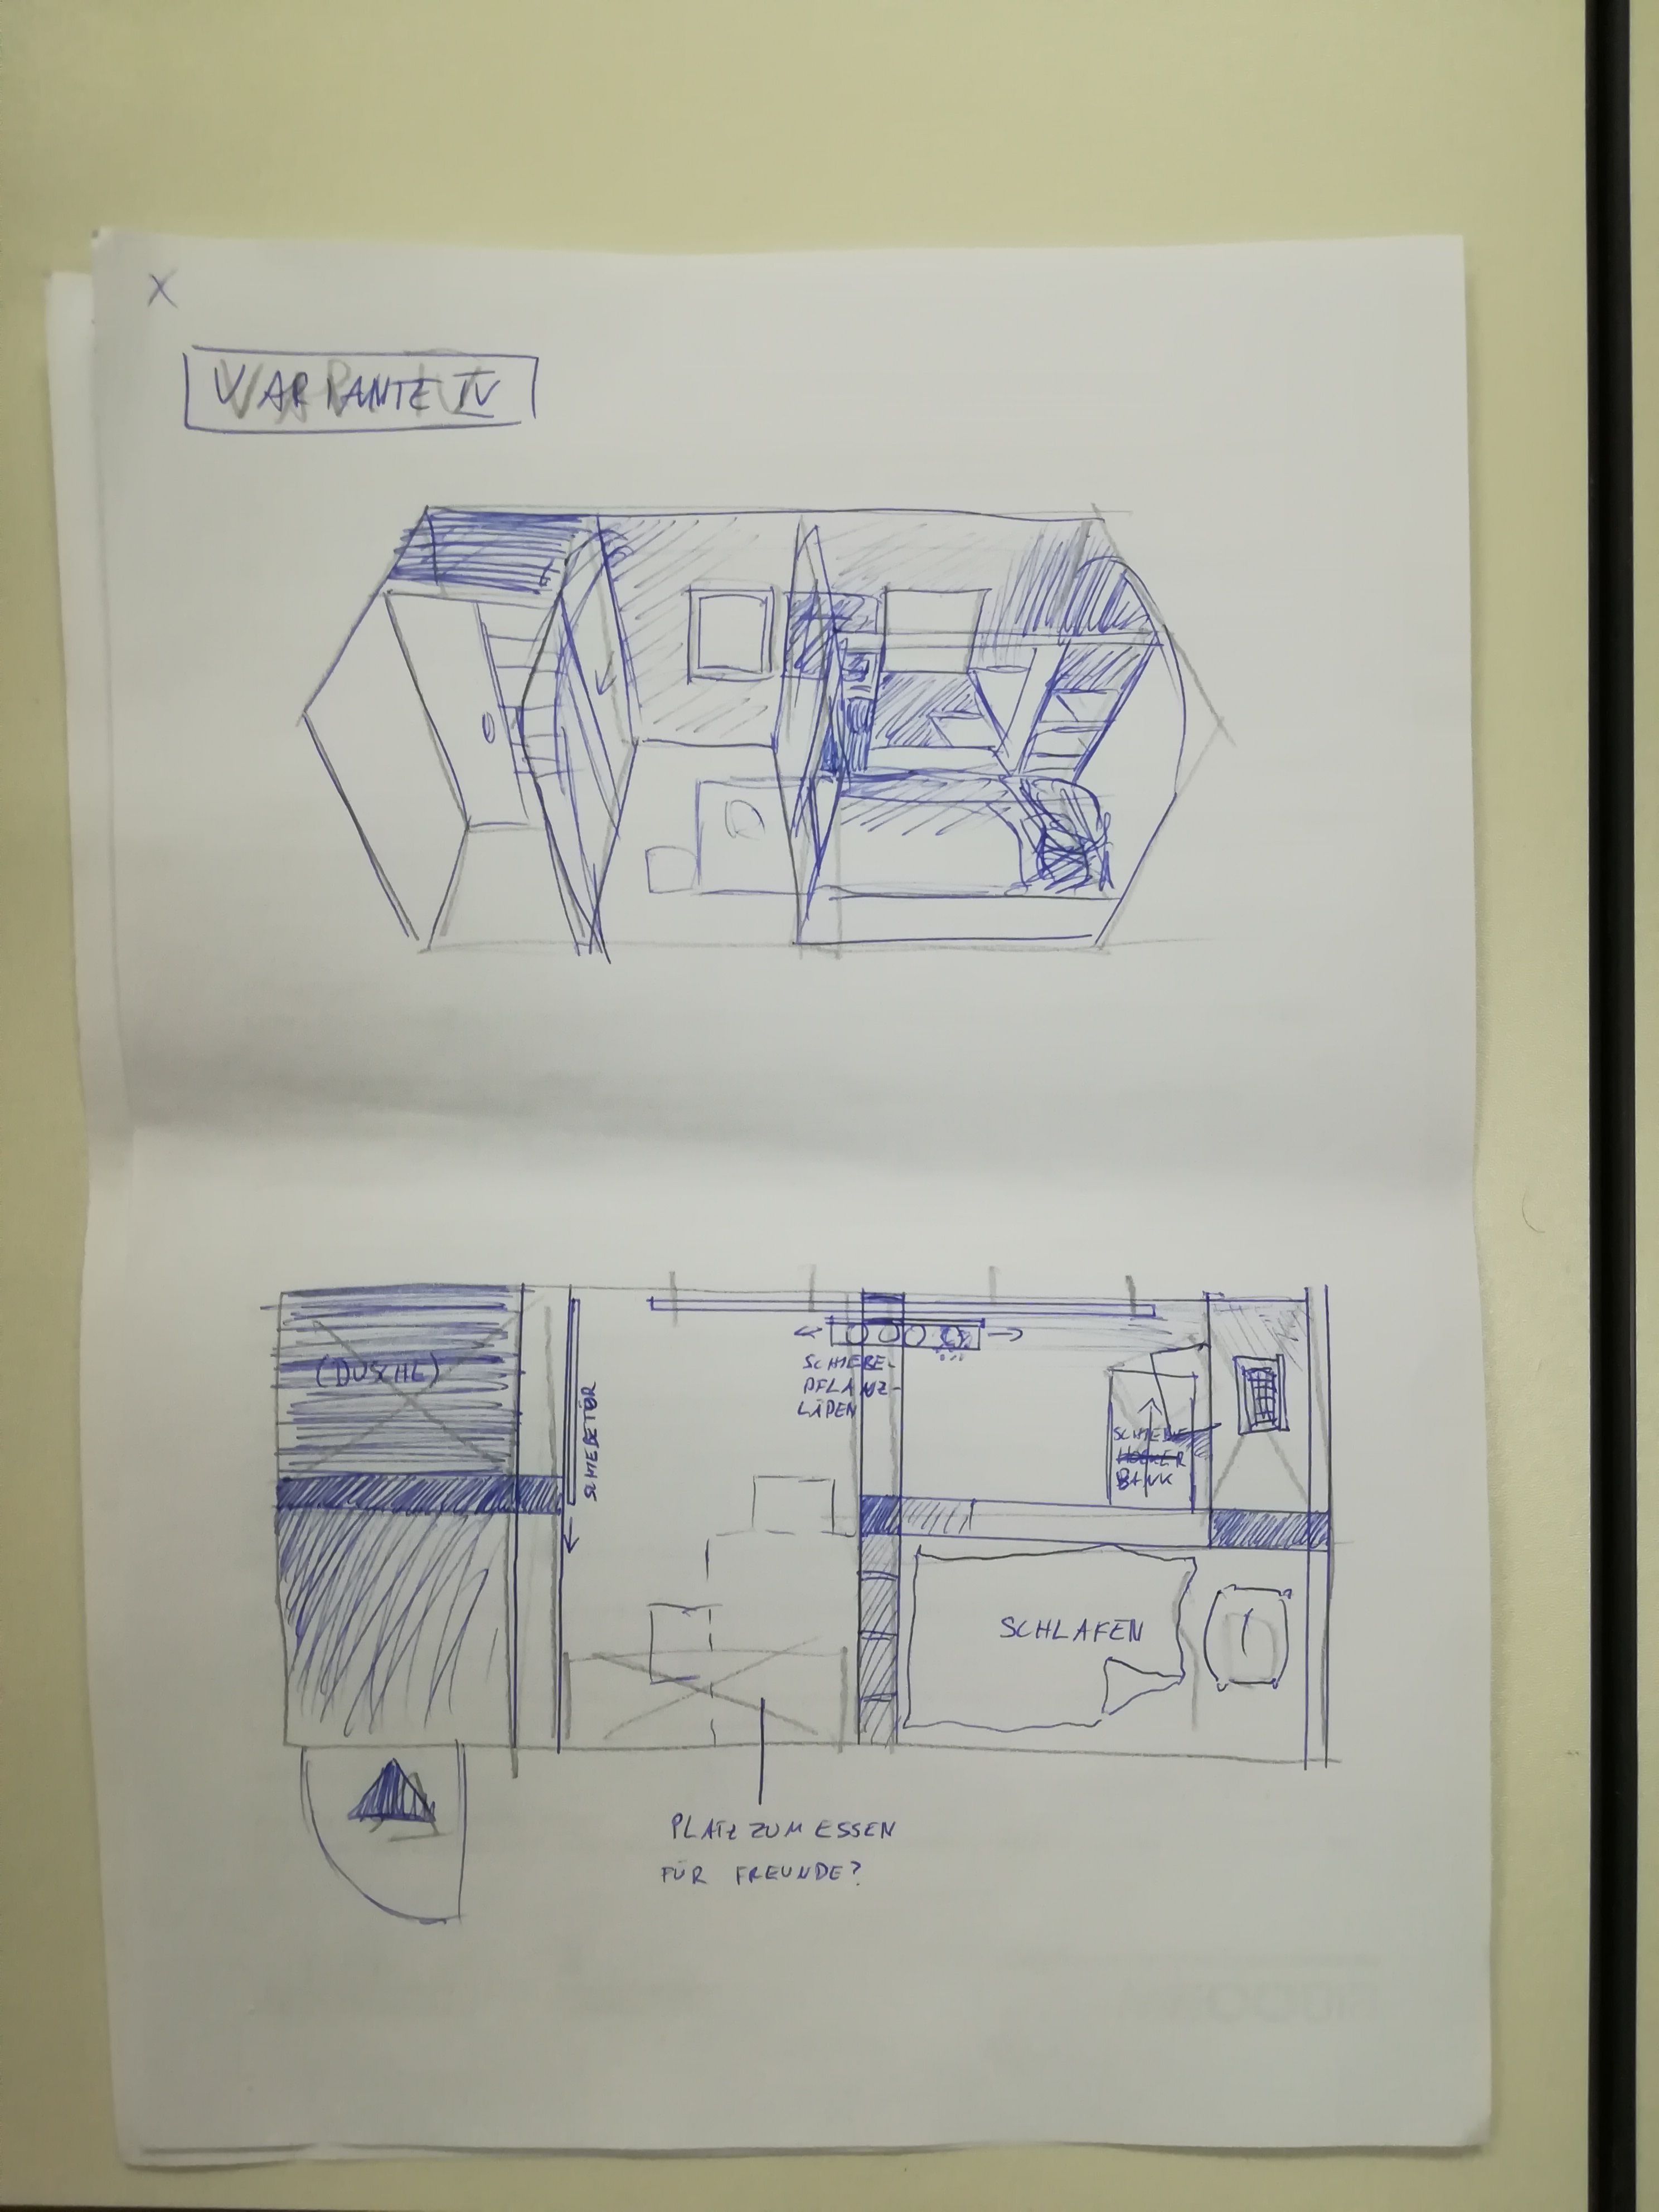 X
VARIANTE IV
(DUSCHE)
SCHIEBETÜR
SCHIEBE-
PFLANZ-
LÄDEN
SCHIEBE
HOCKER
BANK
SCHLAFEN
PLATZ ZUM ESSEN
FÜR FREUNDE?